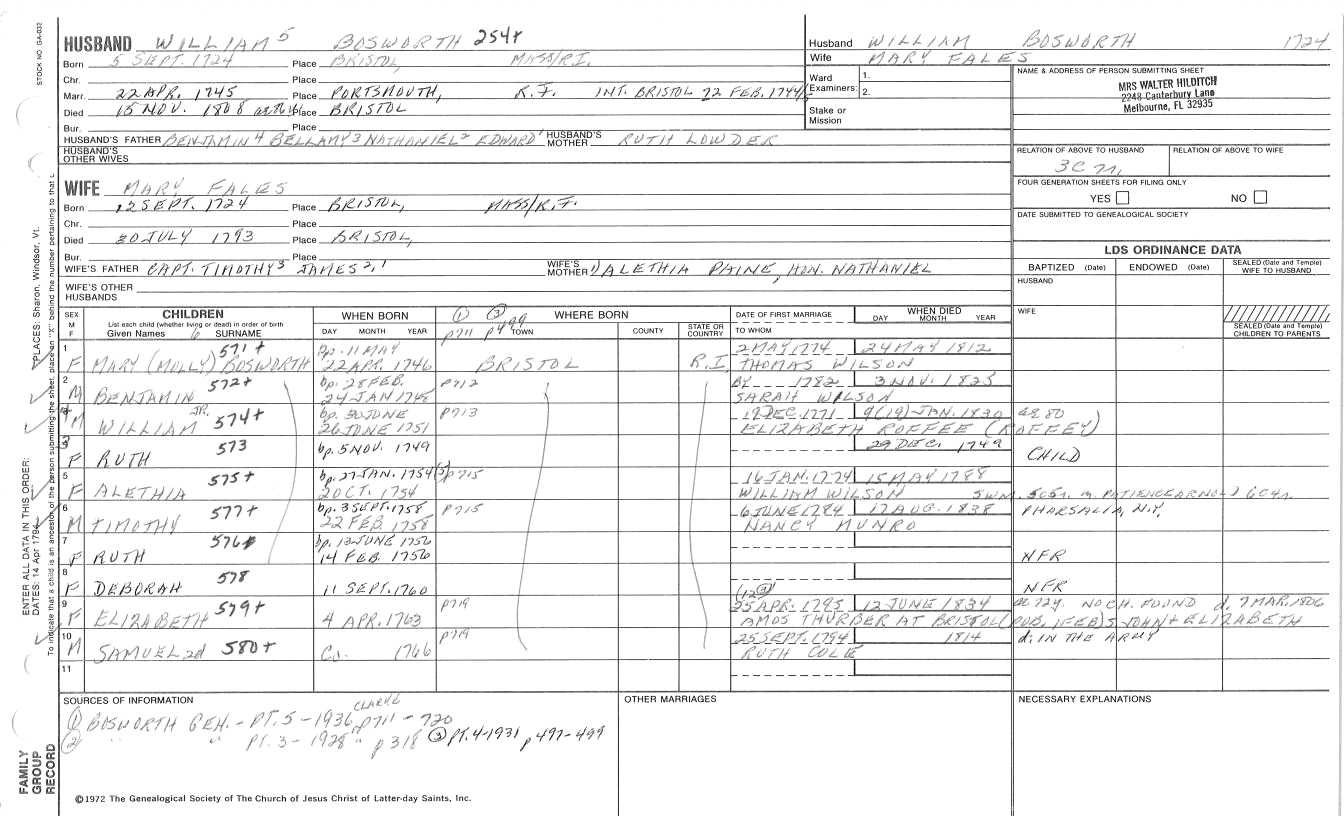 STOCK NO. GA-032
HUSBAND WILLIAM 5 BOSWORTH 254+
Born 5 SEPT. 1724 Place BRISTOL, MASS/R.I.
Chr. Place
Marr. 22 APR. 1745 Place PORTSMOUTH, R.I. INT. BRISTOL 22 FEB. 1744/5
Died 15 NOV. 1808 Place BRISTOL
Bur. Place
HUSBAND'S FATHER BENJAMIN 4 BELLAMY 3 NATHANIEL 2 EDWARD 1 HUSBAND'S MOTHER RUTH LOWDER
HUSBAND'S OTHER WIVES
WIFE MARY FALES
Born 12 SEPT. 1724 Place BRISTOL, MASS/R.I.
Chr. Place
Died 20 JULY 1793 Place BRISTOL,
Bur. Place
WIFE'S FATHER CAPT. TIMOTHY 3 JAMES 2,1 WIFE'S MOTHER ALETHIA PAINE, HON. NATHANIEL
WIFE'S OTHER HUSBANDS
Husband WILLIAM BOSWORTH 1724
Wife MARY FALES
Ward Examiners: 1. 2.
Stake or Mission
NAME & ADDRESS OF PERSON SUBMITTING SHEET
MRS WALTER HILDITCH
2248 Canterbury Lane
Melbourne, FL 32935
RELATION OF ABOVE TO HUSBAND RELATION OF ABOVE TO WIFE
3C
FOUR GENERATION SHEETS FOR FILING ONLY
YES NO
DATE SUBMITTED TO GENEALOGICAL SOCIETY
LDS ORDINANCE DATA
BAPTIZED (Date) ENDOWED (Date) SEALED (Date and Temple) WIFE TO HUSBAND
HUSBAND
WIFE
SEALED (Date and Temple) CHILDREN TO PARENTS
SEX M F CHILDREN
List each child (whether living or dead) in order of birth
Given Names 6 SURNAME
WHEN BORN
DAY MONTH YEAR
① ③ WHERE BORN
p711 p499 TOWN COUNTY STATE OR COUNTRY
DATE OF FIRST MARRIAGE
TO WHOM
WHEN DIED
DAY MONTH YEAR
1 571+ bp. 11 MAY 2 MAY 1774 24 MAY 1812
F MARY (MOLLY) BOSWORTH 22 APR. 1746 BRISTOL R.I THOMAS WILSON
2 572+ bp. 28 FEB. p712 BY 1782 3 NOV. 1825
M BENJAMIN 24 JAN 174 SARAH WILSON
JR. 574+ bp. 30 JUNE p713 19 DEC. 1771 9(19) JAN. 1830 ae 80
M WILLIAM 26 JUNE 1751 ELIZABETH ROFFEE (ROFFEY)
573 bp. 5 NOV. 1749 29 DEC. 1749
F RUTH CHILD
5 575+ bp. 27 JAN. 1754(5) p715 16 JAN. 1774 15 MAY 1788
F ALETHIA 20 OCT. 1754 WILLIAM WILSON PATIENCE ARNOLD
6 577+ bp. 3 SEPT. 1758 p715 6 JUNE 1784 17 AUG. 1838 PHARSALIA, N.Y.
M TIMOTHY 22 FEB 1758 NANCY MUNRO
7 576 bp. 13 JUNE 1756
F RUTH 14 FEB. 1756 NFR
8 578
F DEBORAH 11 SEPT. 1760 NFR
9 579+ p719 25 APR. 1795 12 JUNE 1834 ae 72y. NO CH. FOUND d. 7 MAR. 1806
F ELIZABETH 4 APR. 1763 AMOS THURBER AT BRISTOL (PUB. 1 FEB) S JOHN + ELIZABETH
10 580+ p719 25 SEPT. 1794 1814 d. IN THE ARMY
M SAMUEL 2d Ca. 1766 RUTH COLE
11
SOURCES OF INFORMATION
CLARKE
① BOSWORTH GEN. - PT. 5 - 1936, p711 - 720
② " " PT. 3 - 1928 " p 318 ③ PT. 4-1931 p 497-499
OTHER MARRIAGES
NECESSARY EXPLANATIONS
©1972 The Genealogical Society of The Church of Jesus Christ of Latter-day Saints, Inc.
FAMILY GROUP RECORD
ENTER ALL DATA IN THIS ORDER:
DATES: 14 Apr 1794
PLACES: Sharon, Windsor, Vt.
To indicate that a child is an ancestor of the person submitting the sheet, place an "X" behind the number pertaining to that